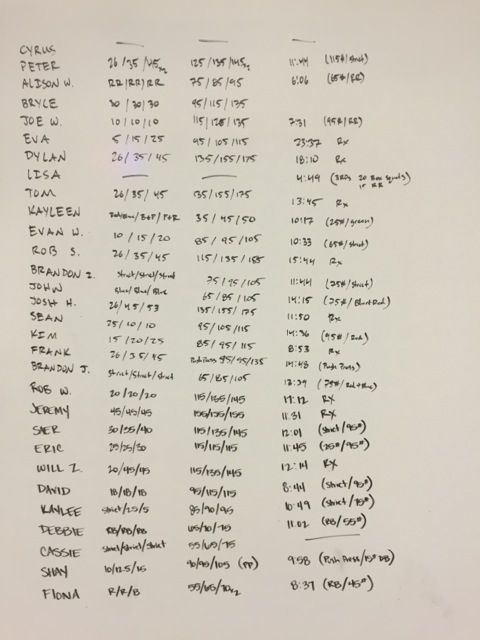 CYRUS — — —
PETER 26/35/45x2 125/135/145x2 11:44 (115#/strict)
ALISON W. RR/RR/RR 75/85/95 6:06 (65#/RR)
BRYCE 30/30/30 95/115/135
JOE W. 10/10/10 115/125/135 7:31 (95#/RR)
EVA 5/15/25 95/105/115 23:37 Rx
DYLAN 26/35/45 135/155/175 18:10 Rx
LISA — — 4:49 (3RDS 20 Box Squats 15 RR)
TOM 26/35/45 135/155/175 13:45 Rx
KAYLEEN 35/45/50 10:17 (25#/green)
EVAN W. 10/15/20 85/95/105 10:33 (65#/strict)
ROB S. 26/35/45 115/135/155 15:44 Rx
BRANDON Z. strict/strict/strict 75/95/105 11:44 (75#/strict)
JOHN Blue/Blue/Blue 65/85/105 14:15 (75#/)
JOSH H. 26/45/53 135/155/175 11:50 Rx
SEAN 25/10/10 95/105/115 14:36 (95#/Red)
KIM 15/20/25 85/95/115 8:53 Rx
FRANK 26/35/45 85/95/135 14:48 (Push Press)
BRANDON J. strict/strict/strict 65/85/105 13:39 (75#/Red+Blue)
ROB W. 20/20/20 115/135/145 17:12 RX
JEREMY 45/45/45 135/135/155 11:31 RX
SAER 30/35/40 115/135/145 12:01 (strict/95#)
ERIC 25/25/30 115/115/115 11:45 (25#/95#)
WILL Z. 20/45/45 115/135/145 12:14 RX
DAVID 18/18/18 95/115/115 8:44 (strict/95#)
KAYLEE strict/2.5/5 85/90/95 10:49 (strict/75#)
DEBBIE RB/RB/RB 65/70/75 11:02 (RB/55#)
CASSIE strict/strict/strict 55/65/75 —
SHAY 10/12.5/15 90/95/105 (PP) 9:58 (Push Press/15# DB)
FIONA R/R/B 55/65/70x2 8:37 (RB/45#)